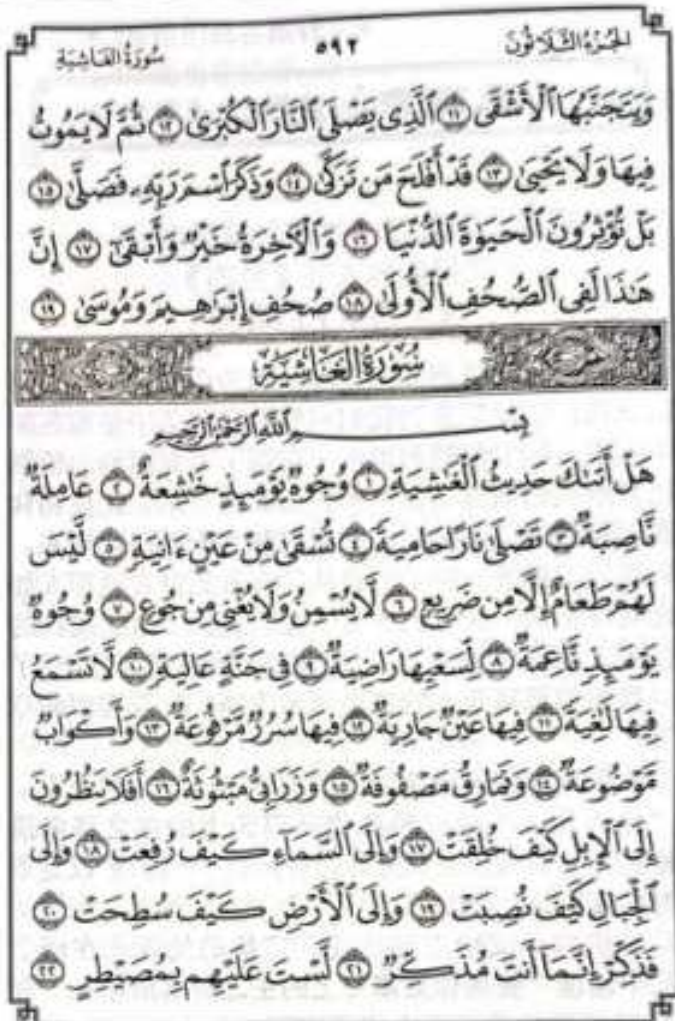 الجزء الثلاثون ٥٩٢ سورة الغاشية
وَيَتَجَنَّبُهَا ٱلْأَشْقَى ١١ ٱلَّذِى يَصْلَى ٱلنَّارَ ٱلْكُبْرَىٰ ١٢ ثُمَّ لَا يَمُوتُ
فِيهَا وَلَا يَحْيَىٰ ١٣ قَدْ أَفْلَحَ مَن تَزَكَّىٰ ١٤ وَذَكَرَ ٱسْمَ رَبِّهِۦ فَصَلَّىٰ ١٥
بَلْ تُؤْثِرُونَ ٱلْحَيَوٰةَ ٱلدُّنْيَا ١٦ وَٱلْأَخِرَةُ خَيْرٌ وَأَبْقَىٰٓ ١٧ إِنَّ
هَـٰذَا لَفِى ٱلصُّحُفِ ٱلْأُولَىٰ ١٨ صُحُفِ إِبْرَٰهِيمَ وَمُوسَىٰ ١٩
سُورَةُ الغَاشِيَةِ
بِسْمِ ٱللَّهِ ٱلرَّحْمَـٰنِ ٱلرَّحِيمِ
هَلْ أَتَىٰكَ حَدِيثُ ٱلْغَـٰشِيَةِ ١ وُجُوهٌ يَوْمَئِذٍ خَـٰشِعَةٌ ٢ عَامِلَةٌ
نَّاصِبَةٌ ٣ تَصْلَىٰ نَارًا حَامِيَةً ٤ تُسْقَىٰ مِنْ عَيْنٍ ءَانِيَةٍ ٥ لَّيْسَ
لَهُمْ طَعَامٌ إِلَّا مِن ضَرِيعٍ ٦ لَّا يُسْمِنُ وَلَا يُغْنِى مِن جُوعٍ ٧ وُجُوهٌ
يَوْمَئِذٍ نَّاعِمَةٌ ٨ لِّسَعْيِهَا رَاضِيَةٌ ٩ فِى جَنَّةٍ عَالِيَةٍ ١٠ لَّا تَسْمَعُ
فِيهَا لَـٰغِيَةً ١١ فِيهَا عَيْنٌ جَارِيَةٌ ١٢ فِيهَا سُرُرٌ مَّرْفُوعَةٌ ١٣ وَأَكْوَابٌ
مَّوْضُوعَةٌ ١٤ وَنَمَارِقُ مَصْفُوفَةٌ ١٥ وَزَرَابِىُّ مَبْثُوثَةٌ ١٦ أَفَلَا يَنظُرُونَ
إِلَى ٱلْإِبِلِ كَيْفَ خُلِقَتْ ١٧ وَإِلَى ٱلسَّمَآءِ كَيْفَ رُفِعَتْ ١٨ وَإِلَى
ٱلْجِبَالِ كَيْفَ نُصِبَتْ ١٩ وَإِلَى ٱلْأَرْضِ كَيْفَ سُطِحَتْ ٢٠
فَذَكِّرْ إِنَّمَآ أَنتَ مُذَكِّرٌ ٢١ لَّسْتَ عَلَيْهِم بِمُصَيْطِرٍ ٢٢